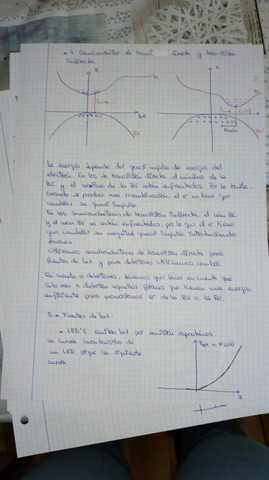 directa y transición
indirecta
E
E
BC
BC
BV
BV
La energía depende del quasi impulso de energía del
electrón. En los de transición directa, el mínimo de la
BC y el máximo de la BV están enfrentados. Por lo tanto,
cuando se produce una recombinación, el e- no tiene que
cambiar su quasi impulso.
En los semiconductores de transición indirecta, el min BC
y el max BV no están enfrentados, por lo que el e- tiene
que cambiar su magnitud quasi impulso intercambiando
fonones.
Utilizamos semiconductores de transición directa para
fuentes de luz y para detectores utilizamos ambos.
En cuanto a detectores, tenemos que tener en cuenta que
solo van a detectar aquellos fotones que tienen una energía
suficiente para promocionar e- de la BV a la BC.
5.- Fuentes de luz:
- LED'S: Emiten luz por emisión espontánea.
La curva característica de
un LED sigue la siguiente
curva
I